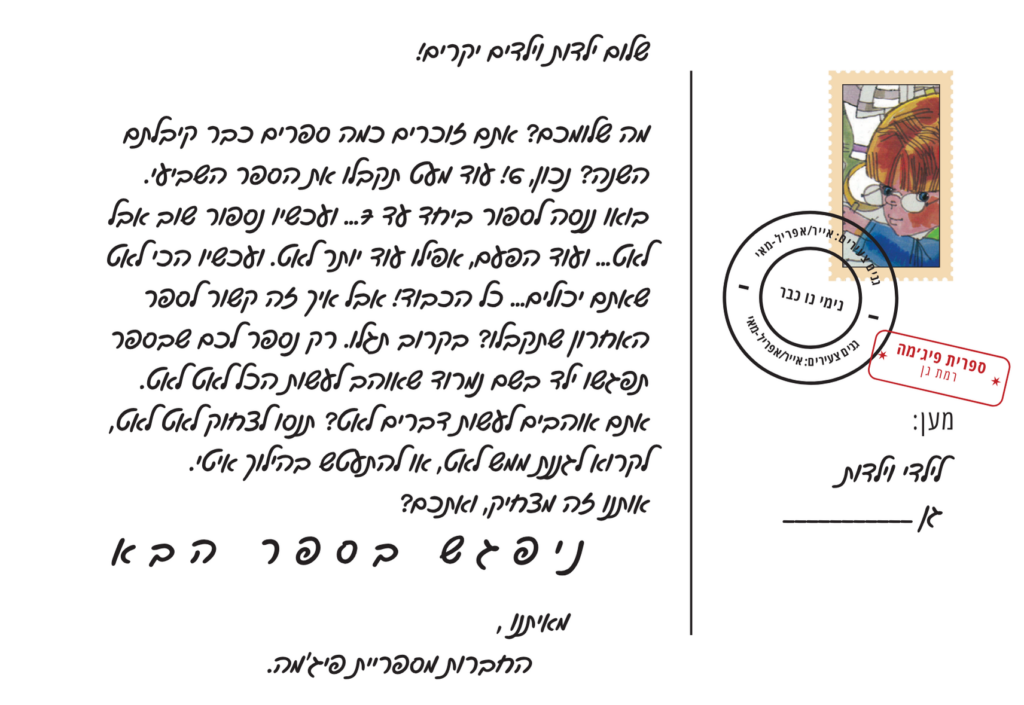 שלום ילדות וילדים יקרים!
מה שלומכם? אתם זוכרים כמה ספרים כבר קיבלתם
השנה? נכון, 6! עוד מעט תקבלו את הספר השביעי.
בואו ננסה לספור ביחד עד 7... ועכשיו נספור שוב אבל
לאט... ועוד הפעם, אפילו עוד יותר לאט. ועכשיו הכי לאט
שאתם יכולים... כל הכבוד! אבל איך זה קשור לספר
האחרון שתקבלו? בקרוב תגלו. רק נספר לכם שבספר
תפגשו ילד בשם נמרוד שאוהב לעשות הכל לאט לאט.
אתם אוהבים לעשות דברים לאט? תנסו לצחוק לאט לאט,
לקרוא לגננת ממש לאט, או להתעטש בהילוך איטי.
אותנו זה מצחיק, ואתכם?
ניפגש בספר הבא
מאיתנו ,
החברות מספריית פיג'מה.
גנים צעירים: אייר/אפריל-מאי
נימי נו כבר
גנים צעירים: אייר/אפריל-מאי
ספרית פיג'מה
רמת גן
מען:
לילדי וילדות
גן ___________